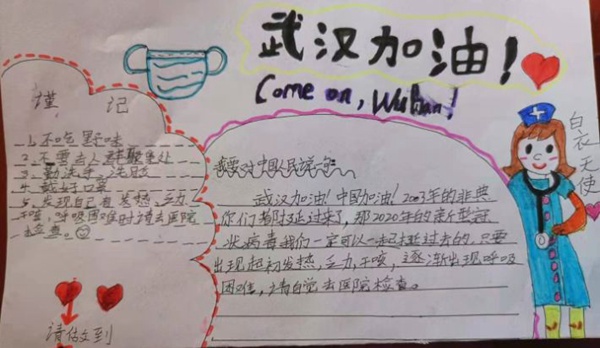 武汉加油！
Come on, Wuhan!
谨记
1、不吃野味
2、不要去人群聚集处
3、勤洗手、洗口
4、戴好口罩
5、发现自己有发热、乏力
干咳、呼吸困难时请去医院
检查。
请做到
我要对中国人民说一句
武汉加油！中国加油！2003年的非典
你们都挺过来了，那2020年的新型冠
状病毒我们一定可以一起挺过去的，只要
出现起初发热，乏力，干咳，逐渐出现呼吸
困难，请自觉去医院检查。
白衣天使